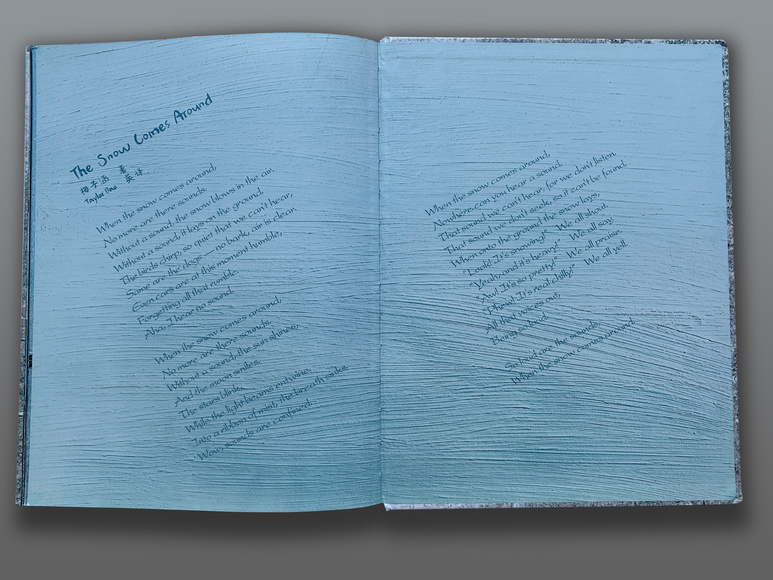 The Snow Comes Around
梅子涵 著
Taylor 英译
When the snow comes around,
No more are there sounds.
Without a sound, the snow blows in the air.
Without a sound, it lays on the ground.
The birds chirp, so quiet that we can't hear,
Same are the dogs — no bark, air is clear.
Even cars are at this moment humble,
Forgetting all that rumble.
Aha, I hear no sound.
When the snow comes around,
No more are there sounds.
Without a sound, the sun shines,
And the moon smiles.
The stars blink,
While the light beams entwine,
Into a ribbon of mist, the breath sides,
Wow, sounds are confined.
When the snow comes around,
Nowhere can you hear a sound.
That sound we can't hear, for we don't listen.
That sound we don't seek, so it can't be found.
When onto the ground the snow lays,
"Look! It's snowing!" We all shout.
"Yeah, and it's heavy!" We all say.
"Aw! It's so pretty!" We all praise.
"Phew! It's real chilly!" We all yell.
All that voices out,
Being so loud.
So loud are the sounds,
When the snow comes around.